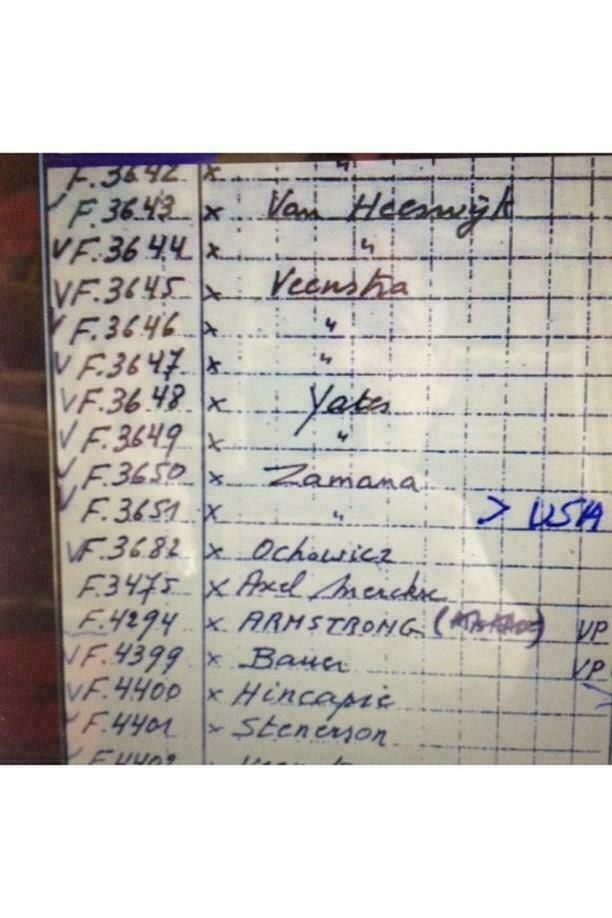 F.3642 x "
✓ F.3643 x Van Heeswijk
VF.3644 x "
VF.3645 x Veenstra
✓ F.3646 x "
V F.3647 x "
VF.3648 x Yates
V F.3649 x "
✓ F.3650 x Zamana
✓ F.3651 x " > USA
VF.3682 x Ochowicz
F.3475 x Axel Merckx
F.4294 x ARMSTRONG ( ) VP
VF.4399 x Bauer VP
VF.4400 x Hincapie
✓ F.4401 x Stenerson